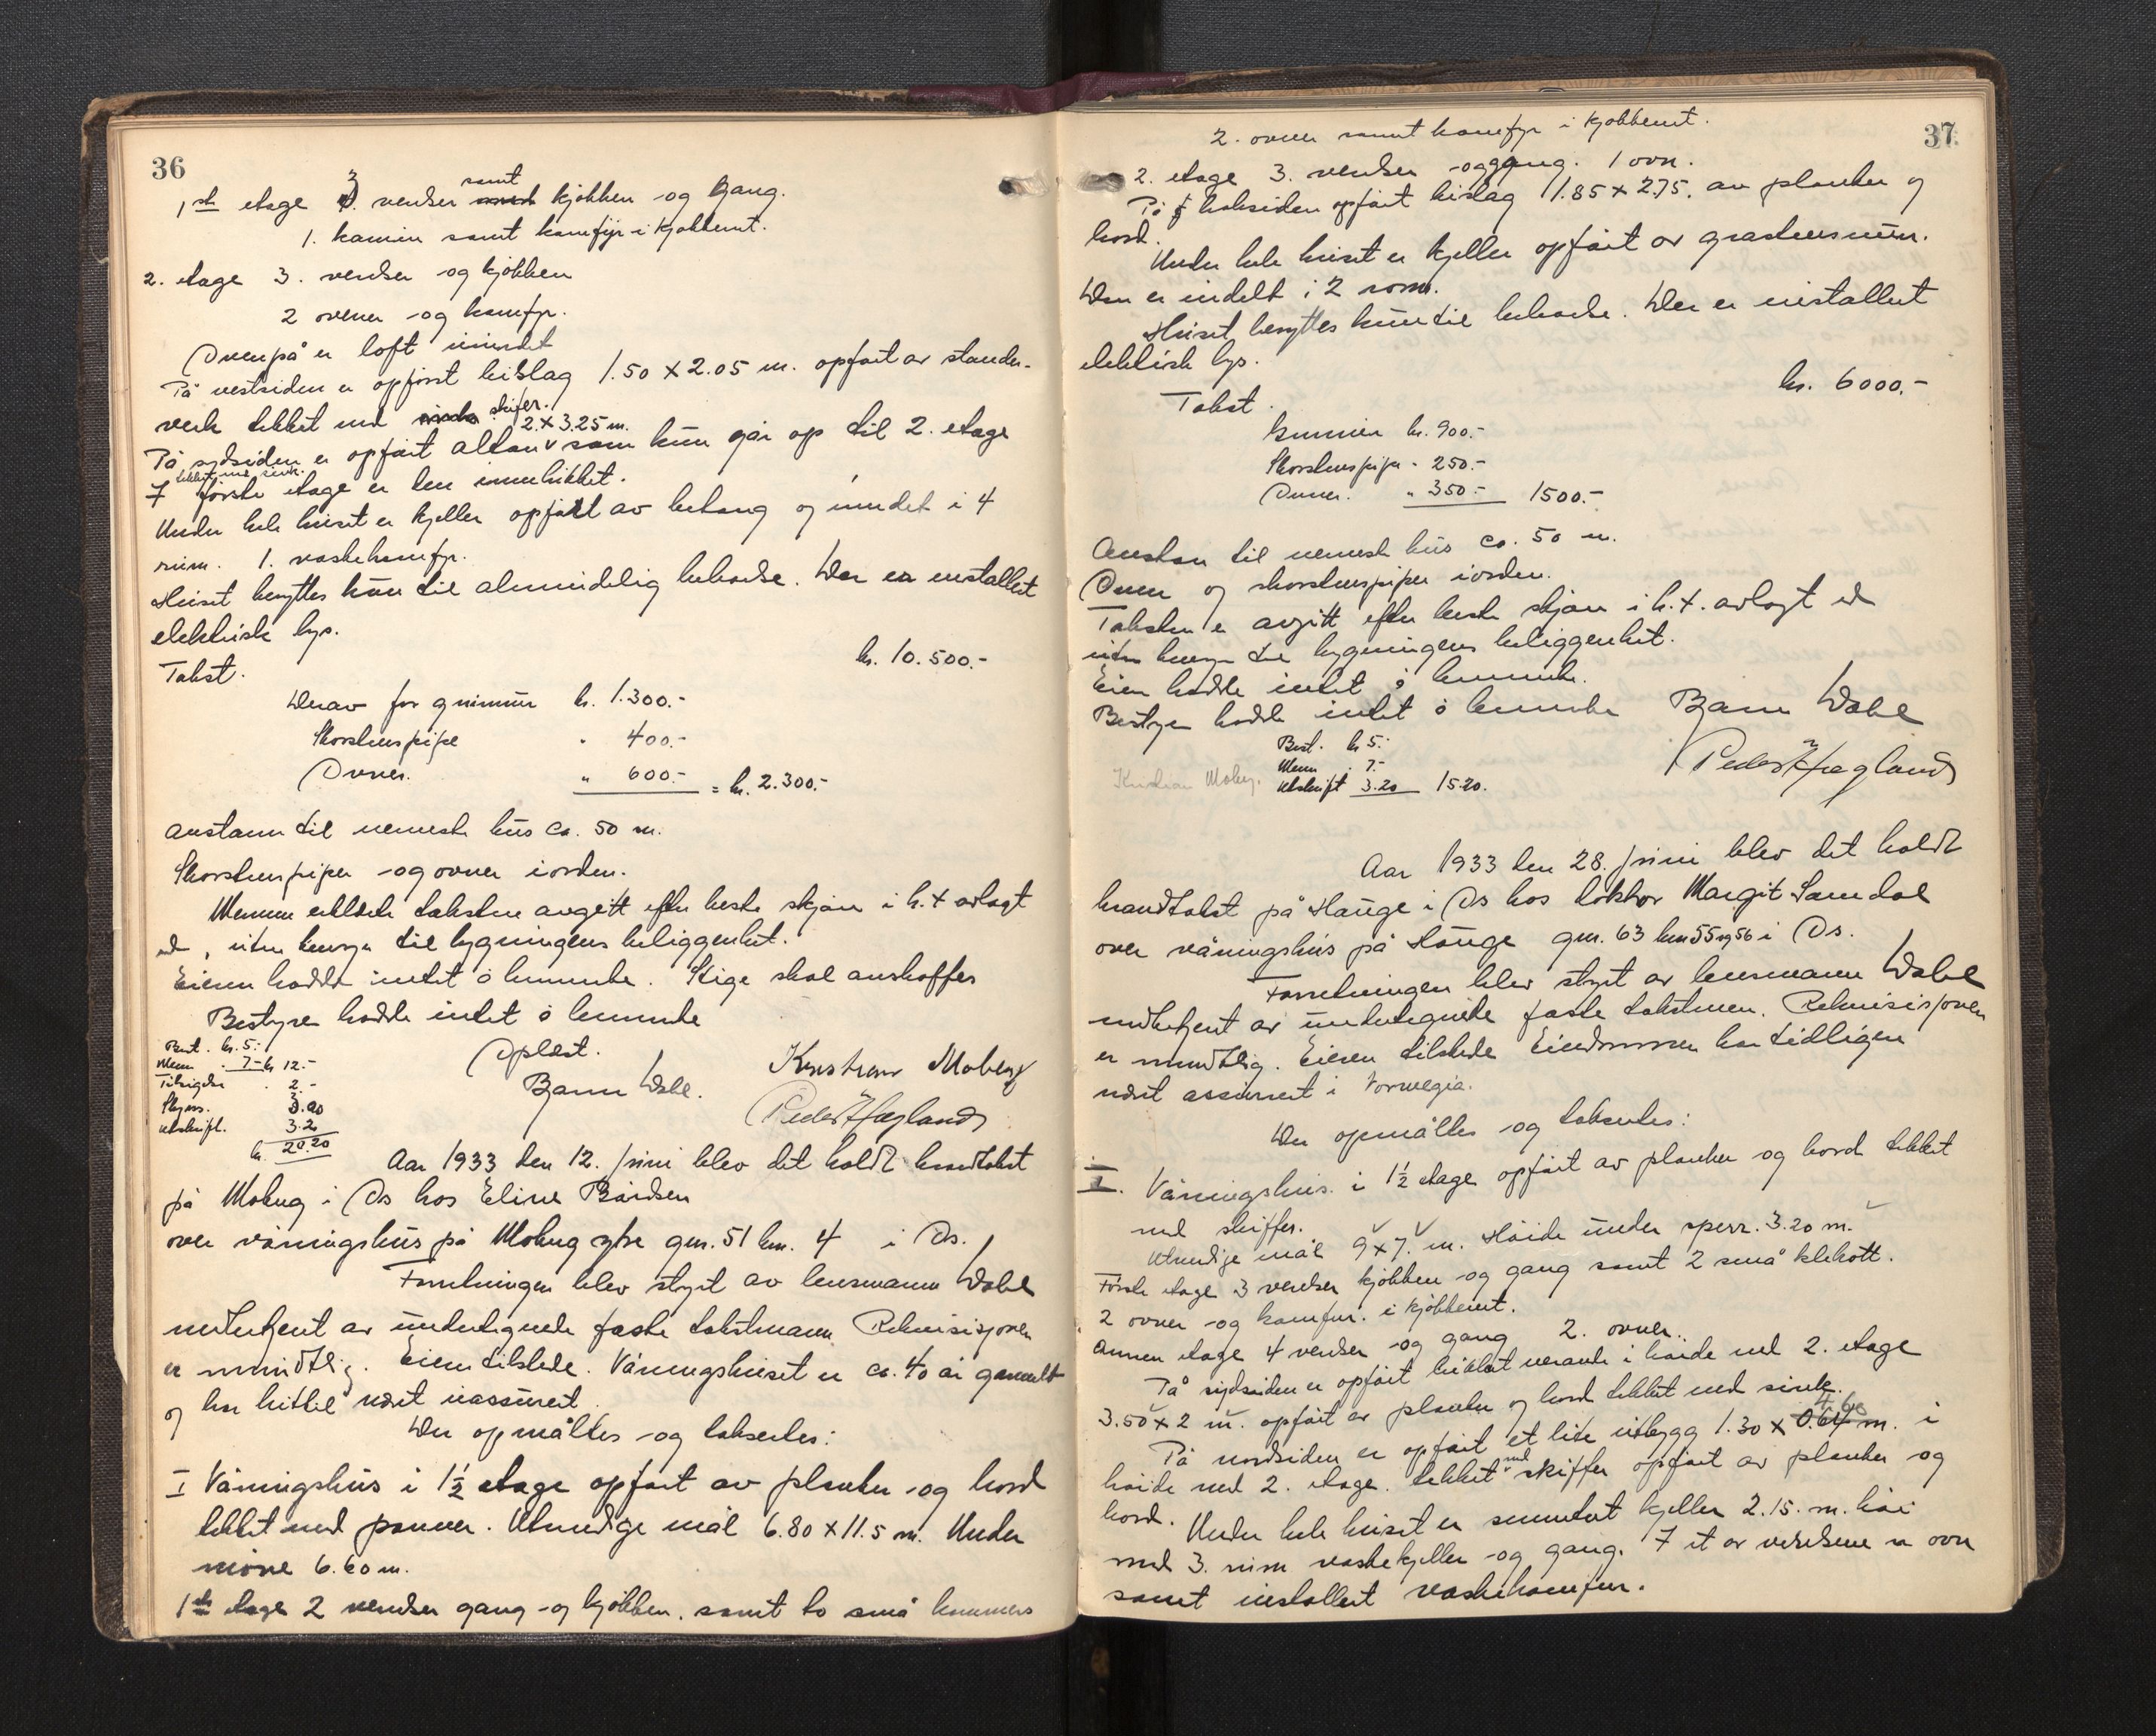 36
1st etage 3 verelser samt kjøkken -og gang.
1. kamin samt komfyr i kjøkkenet.
2. etage 3. verelser og kjøkken
2 ovner -og komfyr.
Ovenpå er loft uinnredet
På vestsiden er opført bislag 1.50 x 2.05 m. opført av stender-
verk tekket med skifer.
På sydsiden er opført altan 2. x 3.25 m. som kun går op til 2. etage
tekket med sink.
I første etage er den innebikket.
Under hele huset er kjeller opført av betong og inndelt i 4
rum. 1. vaskekomfyr.
Huset benyttes kun til almindelig beboelse. Der er installert
elektrisk lys.
Takst. kr. 10.500.-
Derav for grunnmur kr. 1.300.-
Skorstenspipe " 400.-
Ovner. " 600.- = kr. 2.300.-
Avstann til nermeste hus ca. 50 m.
Skorstenspiper -og ovner iorden.
Mennene erklærte taksten avgitt efter beste skjønn i h.t. avlagt
ed, uten hensyn til bygningens beliggenhet.
Eieren hadde intet å bemerke. Stige skal anskaffes
Bestyreren hadde intet å bemerke
Oplest.
Best. kr. 5.-
Menn " 7.- kr 12.-
Tilsigelse " 2.-
Skyss. 3.00
Utskrift. 3.20
kr. 20.20
Bjarne Dahl. Kristian Moberg
Peder Hægland
Aar 1933 den 12. juni blev det holdt brandtakst
på Moberg i Os hos Eline Bårdsen
over våningshus på Moberg ytre gnr. 51 bnr. 4 i Os.
Forretningen blev styrt av lensmann Dahl
medbetjent av undertegnede faste takstmenn Rekvisisjonen
er mundtlig. Eieren tilstede. Våningshuset er ca. 40 år gammelt
og har hittil vært uassurert
Der opmåltes -og takseredes:
I Våningshus i 1½ etage opført av planker -og bord
tekket med panner. Utvendige mål 6.80 x 11.5 m. Under
møne 6.60 m.
1ste etage 2 verelser gang -og kjøkken, samt to små kammers
37
2. ovner samt komfyr i kjøkkenet.
2. etage 3. verelser -og gang. 1 ovn.
På baksiden opført bislag 1.85 x 2.75. av planker og
bord.
Under hele huset er kjeller opført av gråstensmur.
Den er inndelt i 2 rom.
Huset benyttes kun til beboelse. Der er installert
elektrisk lys.
Takst. kr. 6000.-
Grunnmur kr. 900.-
Skorstenspipe " 250.-
Ovner. " 350.- 1500.-
Avstan til nermeste hus ca. 50 m.
Ovner og skorstenspiper iorden.
Taksten er avgitt efter beste skjønn i h.t. avlagt ed
uten hensyn til bygningens beliggenhet.
Eieren hadde intet å bemerke.
Bestyreren hadde intet å bemerke Bjarne Dahl
Best. kr 5.-
Menn " 7.-
Utskrift 3.20 15.20.
Kristian Moberg. Peder Hægland
Aar 1933 den 28. juni blev det holdt
brandtakst på Hauge i Os hos doktor Margit Samdal
over våningshus på Hauge gnr. 63 bnr 55 og 56 i Os.
Forretningen blev styrt av lensmann Dahl
medbetjent av undertegnede faste takstmenn. Rekvisisjonen
er mundtlig. Eieren tilstede Eiendommen har tidligere
vært assurert i Norvegia.
Der opmåltes -og takseredes:
I. Våningshus i 1½ etage opført av planker og bord tekket
med skiffer.
Utvendige mål 9 x 7. m. Høide under sperr. 3.20 m.
Første etage 3 verelser kjøkken -og gang samt 2 små klekott.
2 ovner -og komfur. i kjøkkenet.
Annen etage 4 verelser -og gang 2. ovner.
På sydsiden er opført veranda i høide med 2. etage
3.50 x 2 m. opført av planker og bord tekket med sink.
På nordsiden er opført et lite utbygg 1.30 x 4.60 m. i
høide med 2. etage. tekket med skiffer opført av planker og
bord. Under hele huset er sementert kjeller 2.15. m. høi
med 3. rum vaskekjeller -og gang. I et av verelsene er ovn
samt installert vaskekomfur.